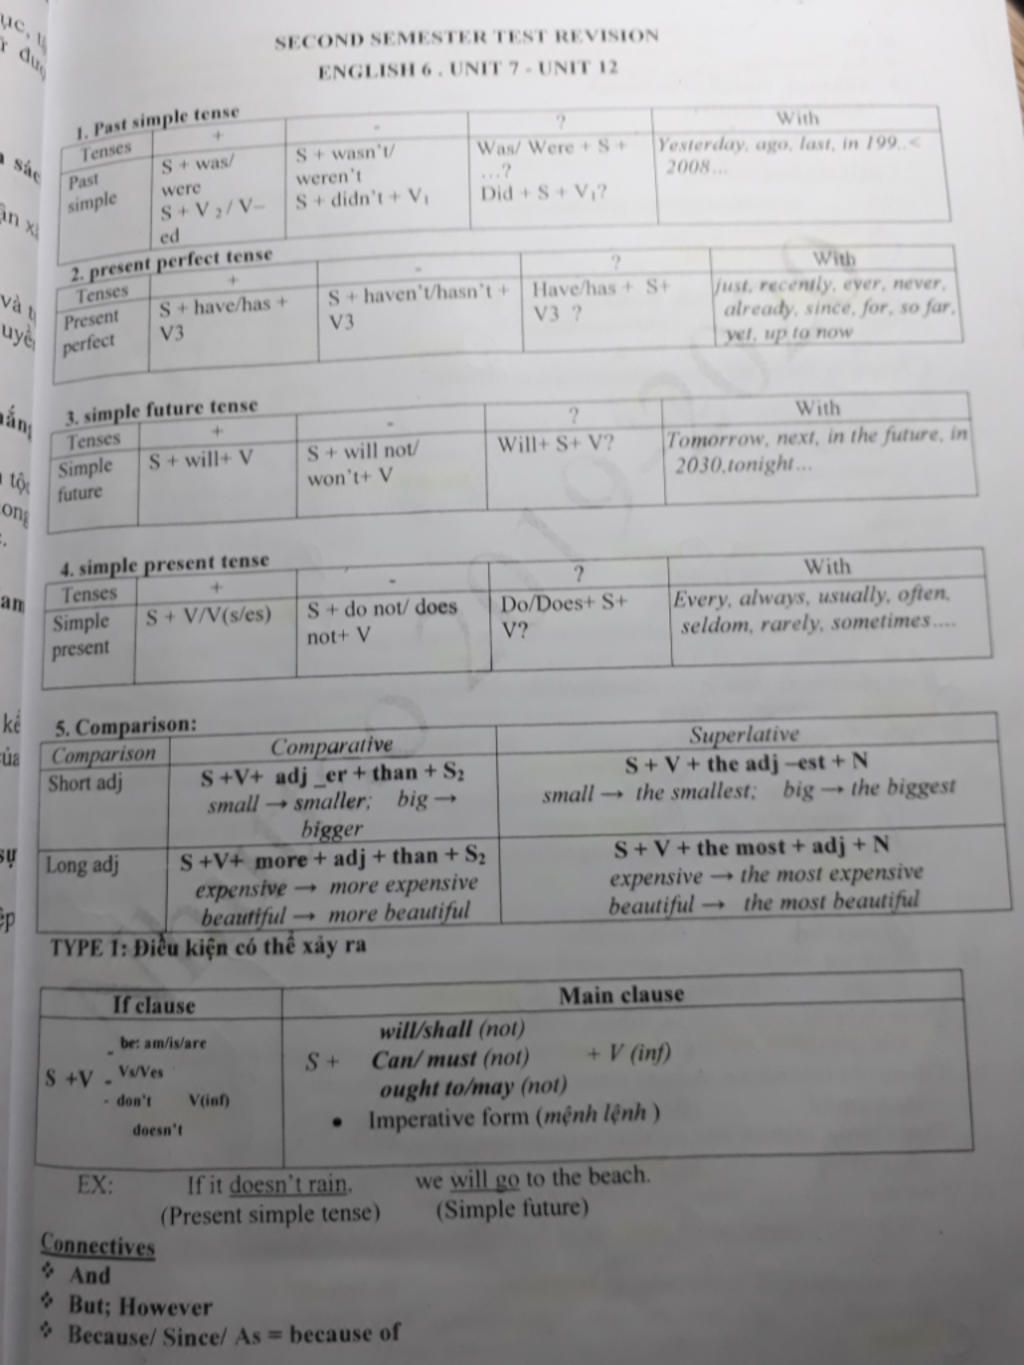 SECOND SEMESTER TEST REVISION
ENGLISH 6 . UNIT 7 - UNIT 12
1. Past simple tense
Tenses + - ? With
Past simple
S + was/ were
S + V 2 / V– ed
S + wasn't/ weren't
S + didn't + V1
Was/ Were + S + …?
Did + S + V1?
Yesterday, ago, last, in 199..<
2008…
2. present perfect tense
Tenses + - ? With
Present perfect
S + have/has + V3
S + haven't/hasn't + V3
Have/has + S+ V3 ?
just, recently, ever, never,
already, since, for, so far,
yet, up to now
3. simple future tense
Tenses + - ? With
Simple future
S + will+ V
S + will not/ won't+ V
Will+ S+ V?
Tomorrow, next, in the future, in
2030,tonight…
4. simple present tense
Tenses + - ? With
Simple present
S + V/V(s/es)
S + do not/ does not+ V
Do/Does+ S+ V?
Every, always, usually, often,
seldom, rarely, sometimes….
5. Comparison:
Comparison Comparative Superlative
Short adj
S +V+ adj _er + than + S2
small → smaller; big →
bigger
S + V + the adj –est + N
small → the smallest; big → the biggest
Long adj
S +V+ more + adj + than + S2
expensive → more expensive
beautiful → more beautiful
S + V + the most + adj + N
expensive → the most expensive
beautiful → the most beautiful
TYPE 1: Điều kiện có thể xảy ra
If clause Main clause
S +V
- be: am/is/are
- Vs/Ves
- don't V(inf)
doesn't
S +
will/shall (not)
Can/ must (not)
ought to/may (not)
+ V (inf)
• Imperative form (mệnh lệnh )
EX: If it doesn't rain, we will go to the beach.
(Present simple tense) (Simple future)
Connectives
❖ And
❖ But; However
❖ Because/ Since/ As = because of